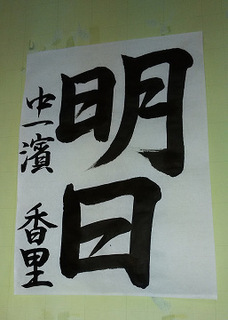 明日
中一 濱 香里